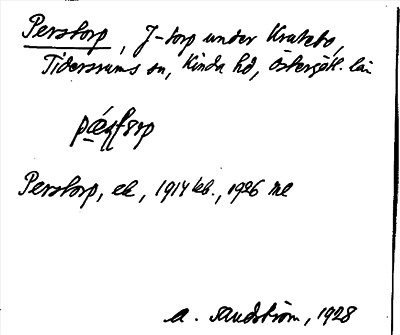 Perstorp, J-torp under Kratebo,
Tidersrums sn, Kinda hd, Östergötl. län
Perstorp, ek, 1914 kb., 1926 ml
A. Sandström, 1928